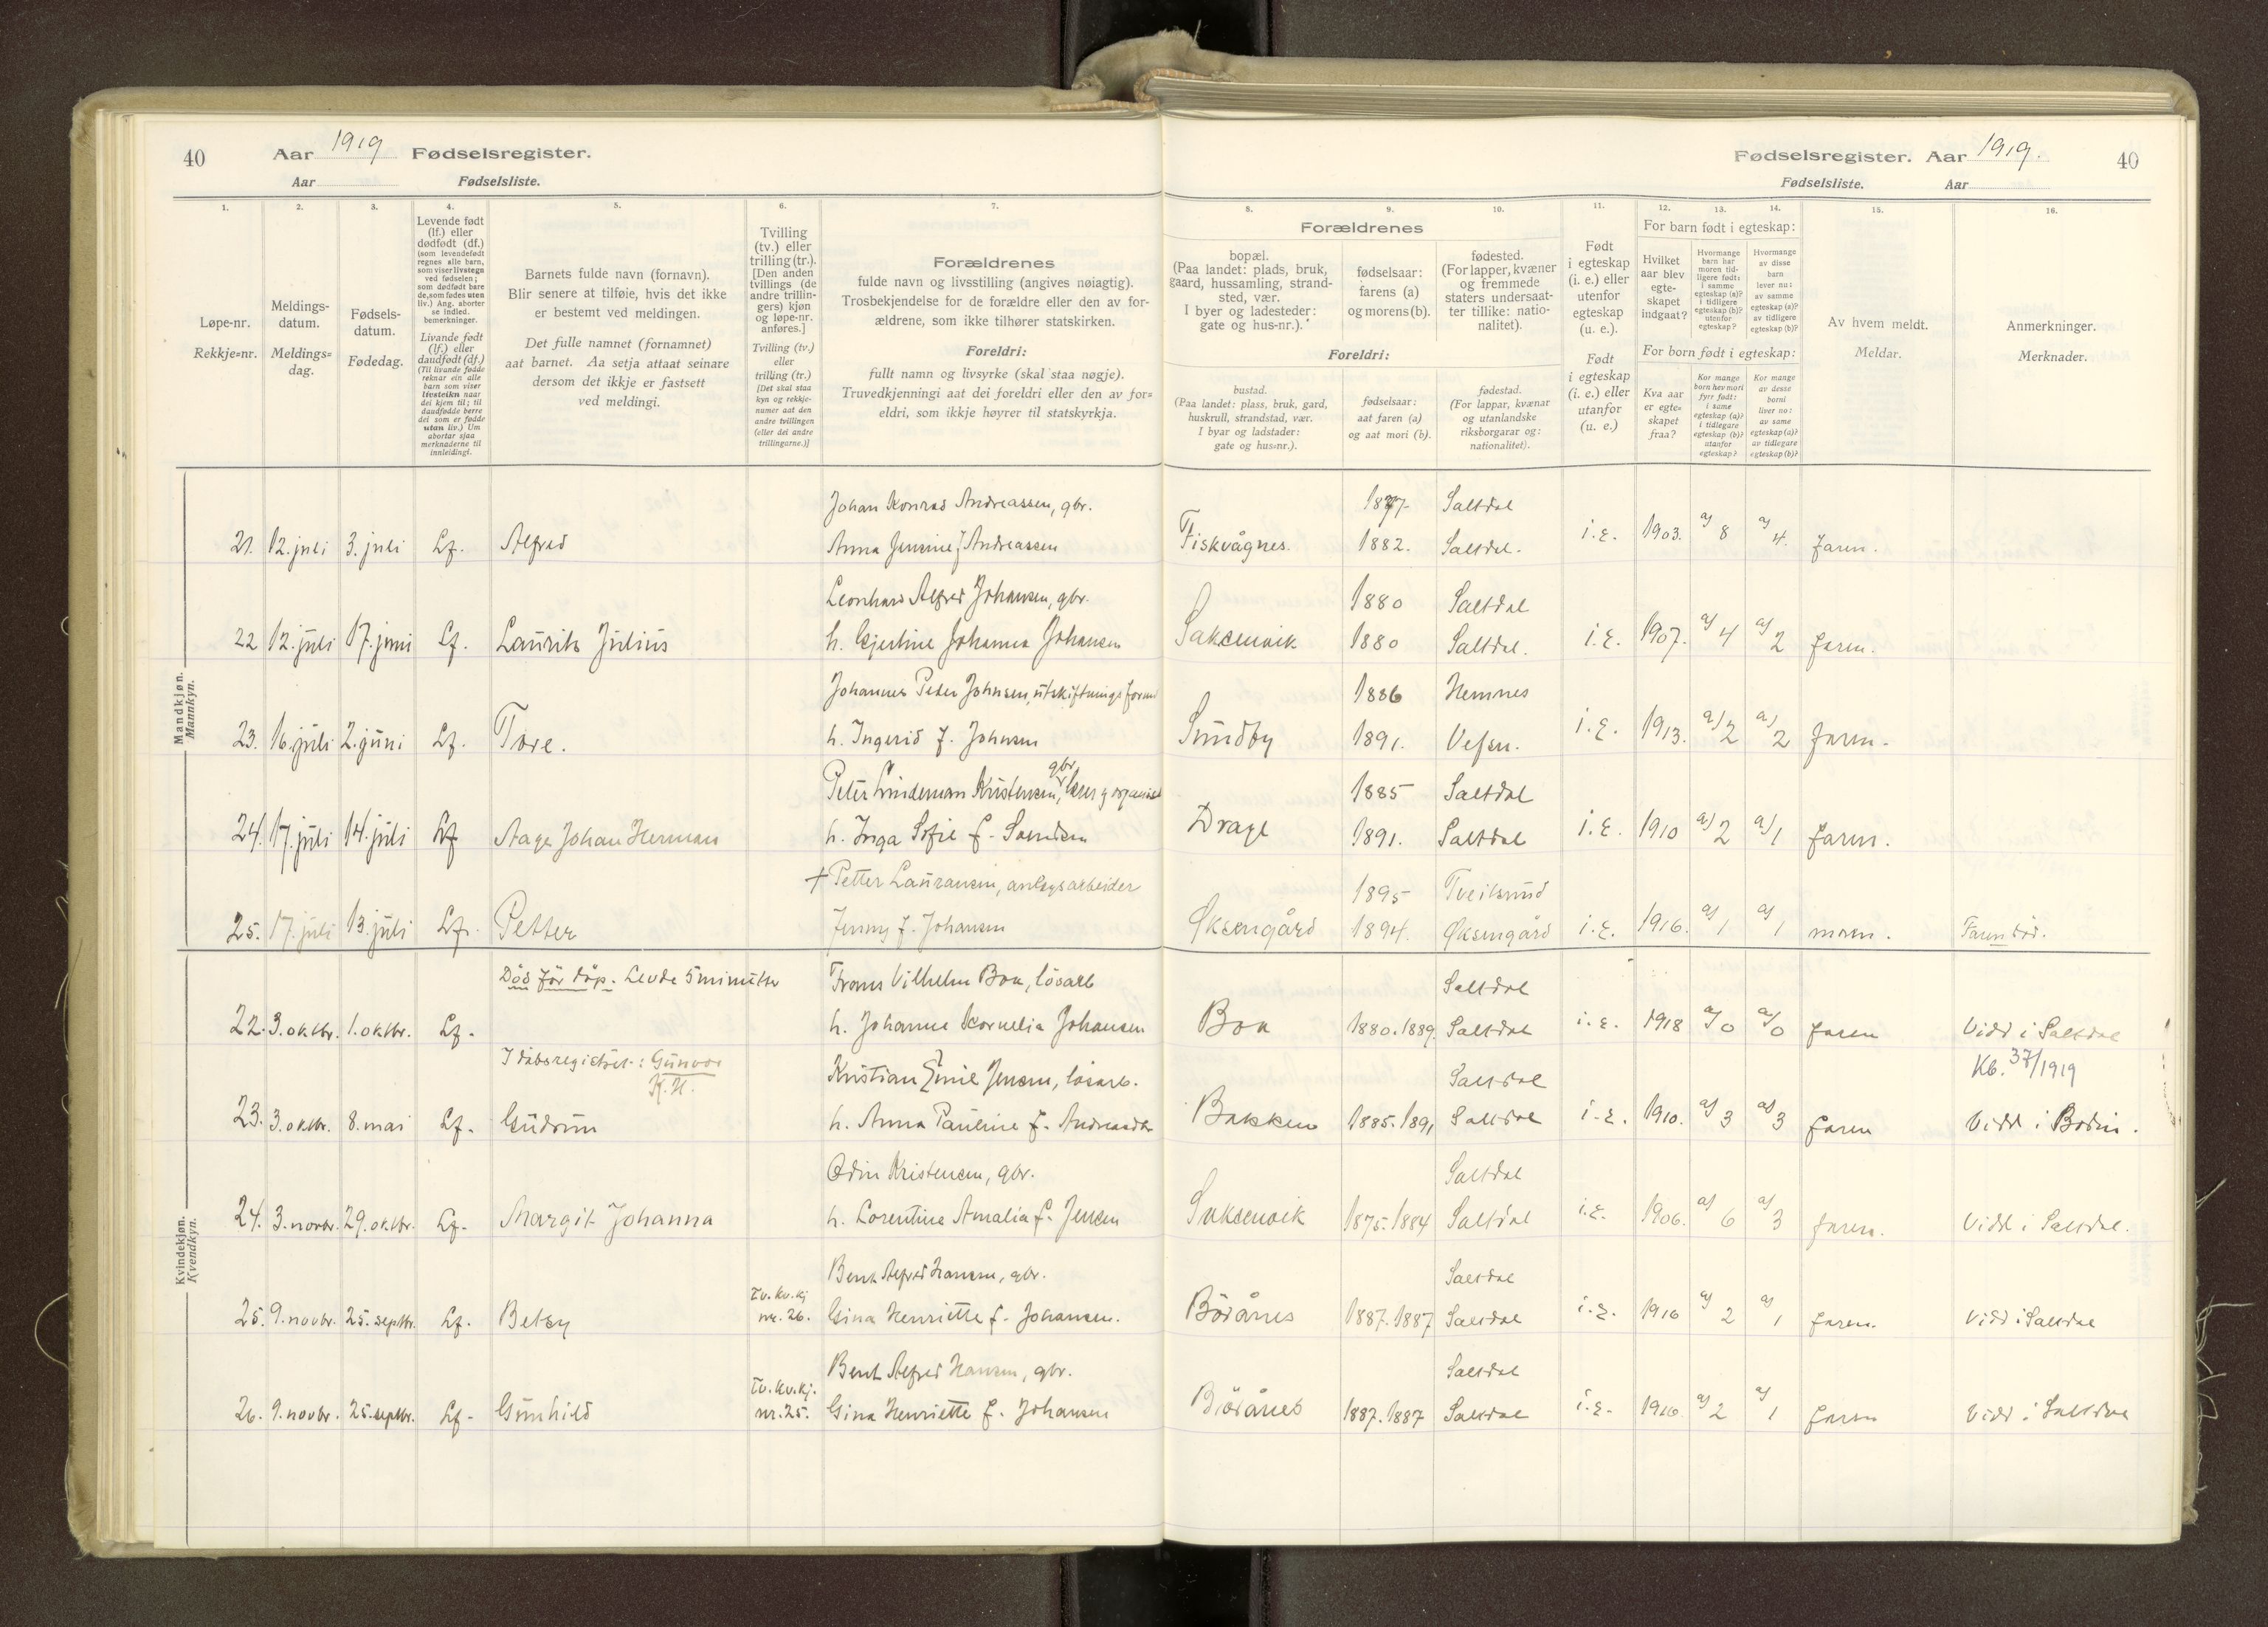 40 Aar 1919 Fødselsregister.
Aar Fødselsliste.
Fødselsregister. Aar 1919. 40
Fødselsliste. Aar
1. 2. 3. 4. 5. 6. 7. 8. 9. 10. 11. 12. 13. 14. 15. 16.
Løpe-nr.
Rekkje=nr.
Meldings-
datum.
Meldings=
dag.
Fødsels-
datum.
Fødedag.
Levende født
(lf.) eller
dødfødt (df.)
(som levendefødt
regnes alle barn,
som viser livstegn
ved fødselen;
som dødfødt bare
de, som fødes uten
liv.) Ang. aborter
se indled.
bemerkninger.
Livande født
(lf.) eller
daudfødt (df.)
(Til livande fødde
reknar ein alle
barn som viser
livsteikn naar
dei kjem til; til
daudfødde berre
dei som er fødde
utan liv.) Um
abortar sjaa
merknaderne til
innleidingi.
Barnets fulde navn (fornavn).
Blir senere at tilføie, hvis det ikke
er bestemt ved meldingen.
Det fulle namnet (fornamnet)
aat barnet. Aa setja attaat seinare
dersom det ikkje er fastsett
ved meldingi.
Tvilling
(tv.) eller
trilling (tr.).
[Den anden
tvillings (de
andre trillin-
gers) kjøn
og løpe-nr.
anføres.]
Tvilling (tv.)
eller
trilling (tr.)
[Det skal staa
kyn og rekkje-
numer aat den
andre tvillingen
(eller dei andre
trillingarne.)]
Forældrenes
fulde navn og livsstilling (angives nøiagtig).
Trosbekjendelse for de forældre eller den av for-
ældrene, som ikke tilhører statskirken.
Foreldri:
fullt namn og livsyrke (skal staa nøgje).
Truvedkjenningi aat dei foreldri eller den av for=
eldri, som ikkje høyrer til statskyrkja.
Forældrenes
bopæl.
(Paa landet: plads, bruk,
gaard, hussamling, strand-
sted, vær.
I byer og ladesteder:
gate og hus-nr.).
fødselsaar:
farens (a)
og morens (b).
fødested.
(For lapper, kvæner
og fremmede
staters undersaat-
ter tillike: natio-
nalitet).
Foreldri:
bustad.
(Paa landet: plass, bruk, gard,
huskrull, strandstad, vær.
I byar og ladstader:
gate og hus=nr.).
fødselsaar:
aat faren (a)
og aat mori (b).
fødestad.
(For lappar, kvænar
og utanlandske
riksborgarar og:
nationalitet).
Født
i egteskap
(i. e.) eller
utenfor
egteskap
(u. e.).
Født
i egteskap
(i. e.) eller
utanfor
(u. e.)
For barn født i egteskap:
Hvilket
aar blev
egte-
skapet
indgaat?
Hvormange
barn har
moren tid-
ligere født:
i samme
egteskap (a)?
i tidligere
egteskap (b)?
utenfor
egteskap?
Hvormange
av disse
barn
lever nu:
av samme
egteskap (a)?
av tidligere
egteskap (b)?
For born født i egteskap:
Kva aar
er egte=
skapet
fraa?
Kor mange
born hev mori
fyrr født:
i same
egteskap (a)?
i tidlegare
egteskap (b)?
utanfor
egteskap?
Kor mange
av desse
borni
liver no:
av same
egteskap (a)?
av tidlegare
egteskap (b)?
Av hvem meldt.
Meldar.
Anmerkninger.
Merknader.
Mandkjøn.
Mannkyn.
Johan Konrad Andreassen, gbr. 1877 Saltdal
21. 12. juli 3. juli Lf. Alfred Anna Jensine f Andreassen Fiskvågnes. 1882. Saltdal. i.e. 1903. a) 8 a) 4. faren.
Leonhard Alfred Johansen, gbr. 1880 Saltdal
22 12. juli 17. juni Lf. Laurits Julius h. Gjertine Johanna Johansen Saksenvik 1880 Saltdal. i.e. 1907. a) 4 a) 2 faren.
Johannes Peder Johnsen, utskiftningsform 1886 Hemnes
23. 16. juli 2. juni Lf. Tore. h. Ingerid f. Johnsen Sundby 1891. Vefsn. i.e. 1913. a) 2 a) 2 faren.
gbr
Peter Lindeman Kristensen, lærer g organist 1885 Saltdal
24. 17. juli 14. juli Lf Aage Johan Herman h. Inga Sofie f. Svendsen Drage 1891. Saltdal i.e. 1910 a) 2 a) 1 faren.
+ Petter Lauransen, anlegsarbeider 1895 Tveitsund
25. 17. juli 13. juli Lf. Petter Jenny f. Johansen Øksengård 1894. Øksengård i.e. 1916. a) 1 a) 1 moren. Faren død.
Kvindekjøn.
Kvendkyn.
Död før dåp. Levde 5 minutter Frans Vilhelm Boa, lösarb Saltdal
22. 3. oktbr. 1. oktbr. Lf. h. Johanne Kornelia Johansen Boa 1880. 1889. Saltdal i.e. 1918 a) 0 a) 0 faren Vidd i Saltdal
I dåbsregistret: Gunvor Kristian Emil Jensen, lösarb. Saltdal Kb. 37/1919
K.H.
23. 3. oktbr. 8. mai Lf. Gudrun h. Anna Pauline f. Andreasdtr Bakken 1885. 1891 Saltdal i.e. 1910. a) 3 a) 3 faren Vidd i Bodin.
Odin Kristensen, gbr. Saltdal
24. 3. novbr. 29. oktbr. Lf. Margit Johanna h. Lorentine Amalia f. Jensen Saksenvik 1875. 1884 Saltdal i.e. 1906. a) 6 a) 3 faren. Vidd i Saltdal.
Bent Alfred Hansen, gbr. Saltdal
25. 9. novbr. 25. septbr. Lf. Betsy Tv. kv. kj nr. 26. Gina Henriette f. Johansen. Bödånes 1887. 1887 Saltdal i.e. 1916 a) 2 a) 1 faren. Vidd i Saltdal
Bent Alfred Hansen, gbr. Saltdal
26. 9. novbr. 25. septbr. Lf. Gunhild Tv. kv. kj. nr. 25. Gina Henriette f. Johansen Bödånes 1887. 1887 Saltdal i.e. 1916 a) 2 a) 1 faren Vidd i Saltdal